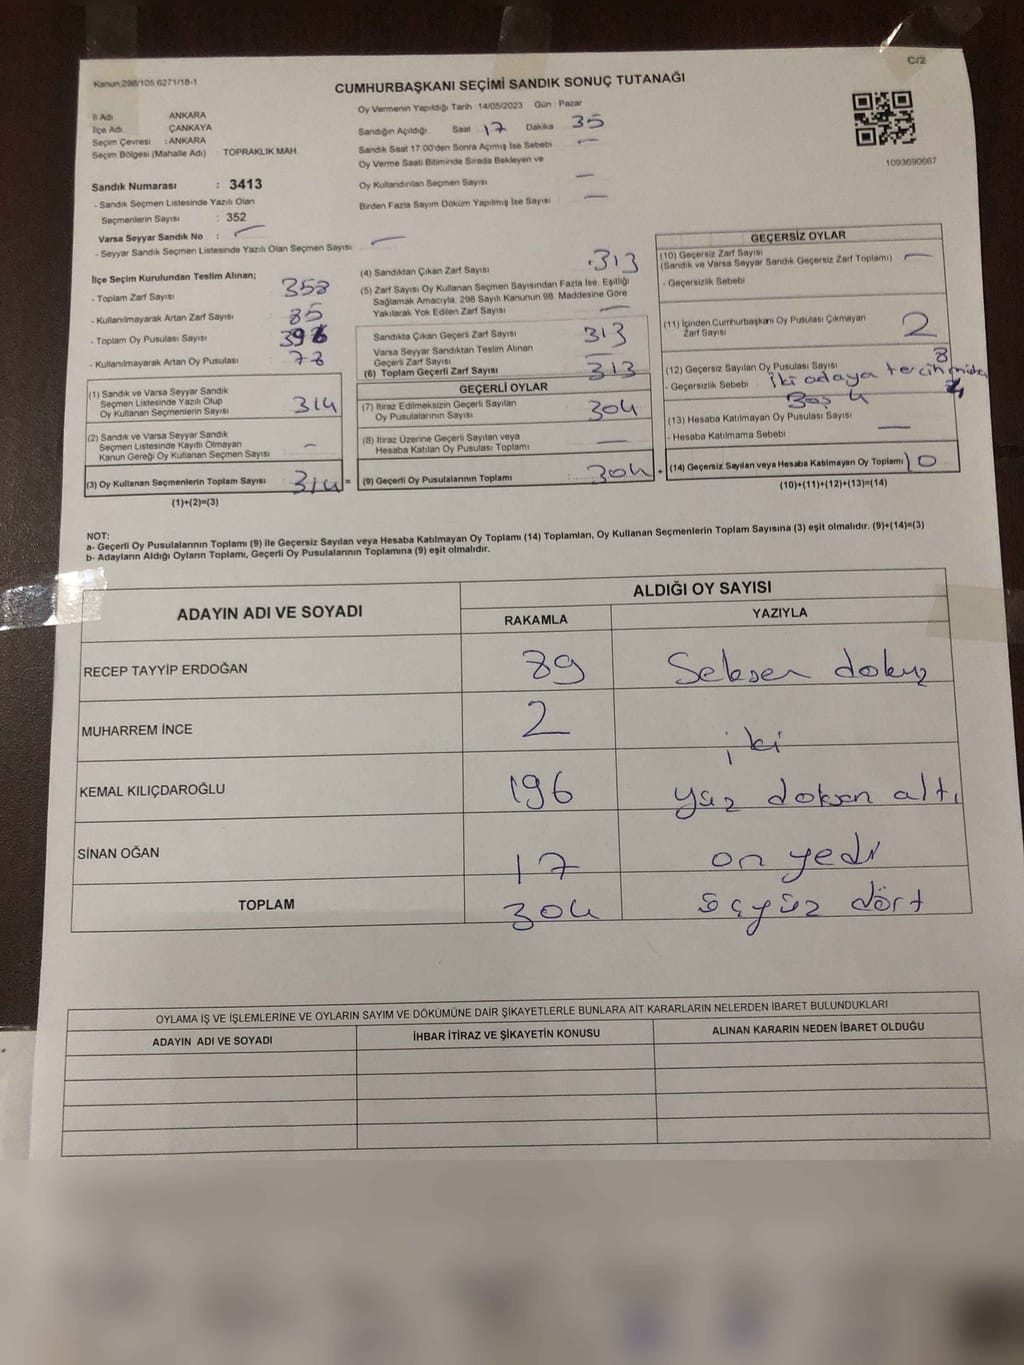 Kanun:298/105,6271/18-1
C/2
CUMHURBAŞKANI SEÇİMİ SANDIK SONUÇ TUTANAĞI
İl Adı ANKARA
İlçe Adı ÇANKAYA
Seçim Çevresi : ANKARA
Seçim Bölgesi (Mahalle Adı) TOPRAKLIK MAH.
Oy Vermenin Yapıldığı Tarih 14/05/2023 Gün Pazar
Sandığın Açıldığı Saat 17 Dakika 35
Sandık Saat 17:00'den Sonra Açımış İse Sebebi —
Oy Verme Saati Bitiminde Sırada Bekleyen ve
Oy Kullandırılan Seçmen Sayısı —
Birden Fazla Sayım Döküm Yapılmış İse Sayısı —
1093690667
Sandık Numarası : 3413
- Sandık Seçmen Listesinde Yazılı Olan
Seçmenlerin Sayısı : 352
Varsa Seyyar Sandık No : —
- Seyyar Sandık Seçmen Listesinde Yazılı Olan Seçmen Sayısı —
İlçe Seçim Kurulundan Teslim Alınan;
- Toplam Zarf Sayısı
- Kullanılmayarak Artan Zarf Sayısı 85
- Toplam Oy Pusulası Sayısı
- Kullanılmayarak Artan Oy Pusulası
(1) Sandık ve Varsa Seyyar Sandık
Seçmen Listesinde Yazılı Olup
Oy Kullanan Seçmenlerin Sayısı 314
(2) Sandık ve Varsa Seyyar Sandık
Seçmen Listesinde Kayıtlı Olmayan
Kanun Gereği Oy Kullanan Seçmen Sayısı : —
(3) Oy Kullanan Seçmenlerin Toplam Sayısı 314 =
(1)+(2)=(3)
(4) Sandıktan Çıkan Zarf Sayısı 313
(5) Zarf Sayısı Oy Kullanan Seçmen Sayısından Fazla İse, Eşitliği
Sağlamak Amacıyla, 298 Sayılı Kanunun 98. Maddesine Göre
Yakılarak Yok Edilen Zarf Sayısı —
Sandıkta Çıkan Geçerli Zarf Sayısı 313
Varsa Seyyar Sandıktan Teslim Alınan
Geçerli Zarf Sayısı —
(6) Toplam Geçerli Zarf Sayısı 313
GEÇERLİ OYLAR
(7) İtiraz Edilmeksizin Geçerli Sayılan
Oy Pusulalarının Sayısı 304
(8) İtiraz Üzerine Geçerli Sayılan veya
Hesaba Katılan Oy Pusulası Toplamı —
(9) Geçerli Oy Pusulalarının Toplamı : 304 +
GEÇERSİZ OYLAR
(10) Geçersiz Zarf Sayısı
(Sandık ve Varsa Seyyar Sandık Geçersiz Zarf Toplamı) —
- Geçersizlik Sebebi
(11) İçinden Cumhurbaşkanı Oy Pusulası Çıkmayan
Zarf Sayısı 2
(12) Geçersiz Sayılan Oy Pusulası Sayısı 8
- Geçersizlik Sebebi iki adaya tercih
Boş 4
(13) Hesaba Katılmayan Oy Pusulası Sayısı
- Hesaba Katılmama Sebebi —
(14) Geçersiz Sayılan veya Hesaba Katılmayan Oy Toplamı 10
(10)+(11)+(12)+(13)=(14)
NOT:
a- Geçerli Oy Pusulalarının Toplamı (9) ile Geçersiz Sayılan veya Hesaba Katılmayan Oy Toplamı (14) Toplamları, Oy Kullanan Seçmenlerin Toplam Sayısına (3) eşit olmalıdır. (9)+(14)=(3)
b- Adayların Aldığı Oyların Toplamı, Geçerli Oy Pusulalarının Toplamına (9) eşit olmalıdır.
ADAYIN ADI VE SOYADI
ALDIĞI OY SAYISI
RAKAMLA YAZIYLA
RECEP TAYYİP ERDOĞAN 89 Seksen dokuz
MUHARREM İNCE 2 iki
KEMAL KILIÇDAROĞLU 196 yüz doksan altı
SİNAN OĞAN 17 on yedi
TOPLAM 304 üçyüz dört
OYLAMA İŞ VE İŞLEMLERİNE VE OYLARIN SAYIM VE DÖKÜMÜNE DAİR ŞİKAYETLERLE BUNLARA AİT KARARLARIN NELERDEN İBARET BULUNDUKLARI
ADAYIN ADI VE SOYADI İHBAR İTİRAZ VE ŞİKAYETİN KONUSU ALINAN KARARIN NEDEN İBARET OLDUĞU